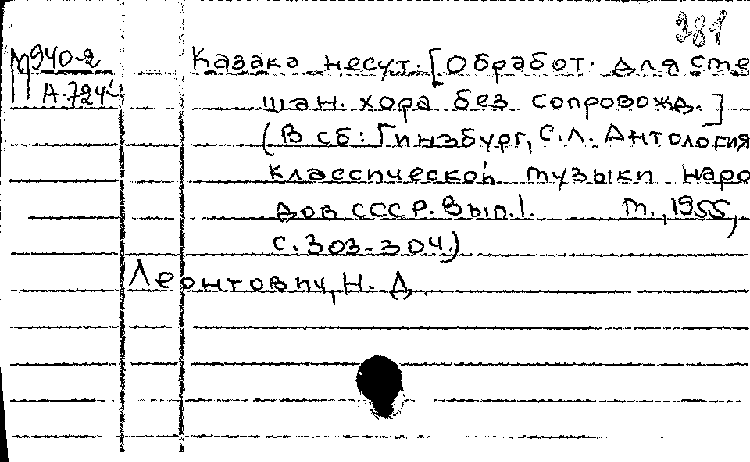 381
М940-2 Казака несут. [Обработ. для сме
А.724 шан. хора без сопровожд.]
(В сб: Гинзбург, С.Л. Антология
классической музыки наро
дов СССР. Вып.1. М., 1955,
с. 303-304.)
Леонтович, Н. Д.